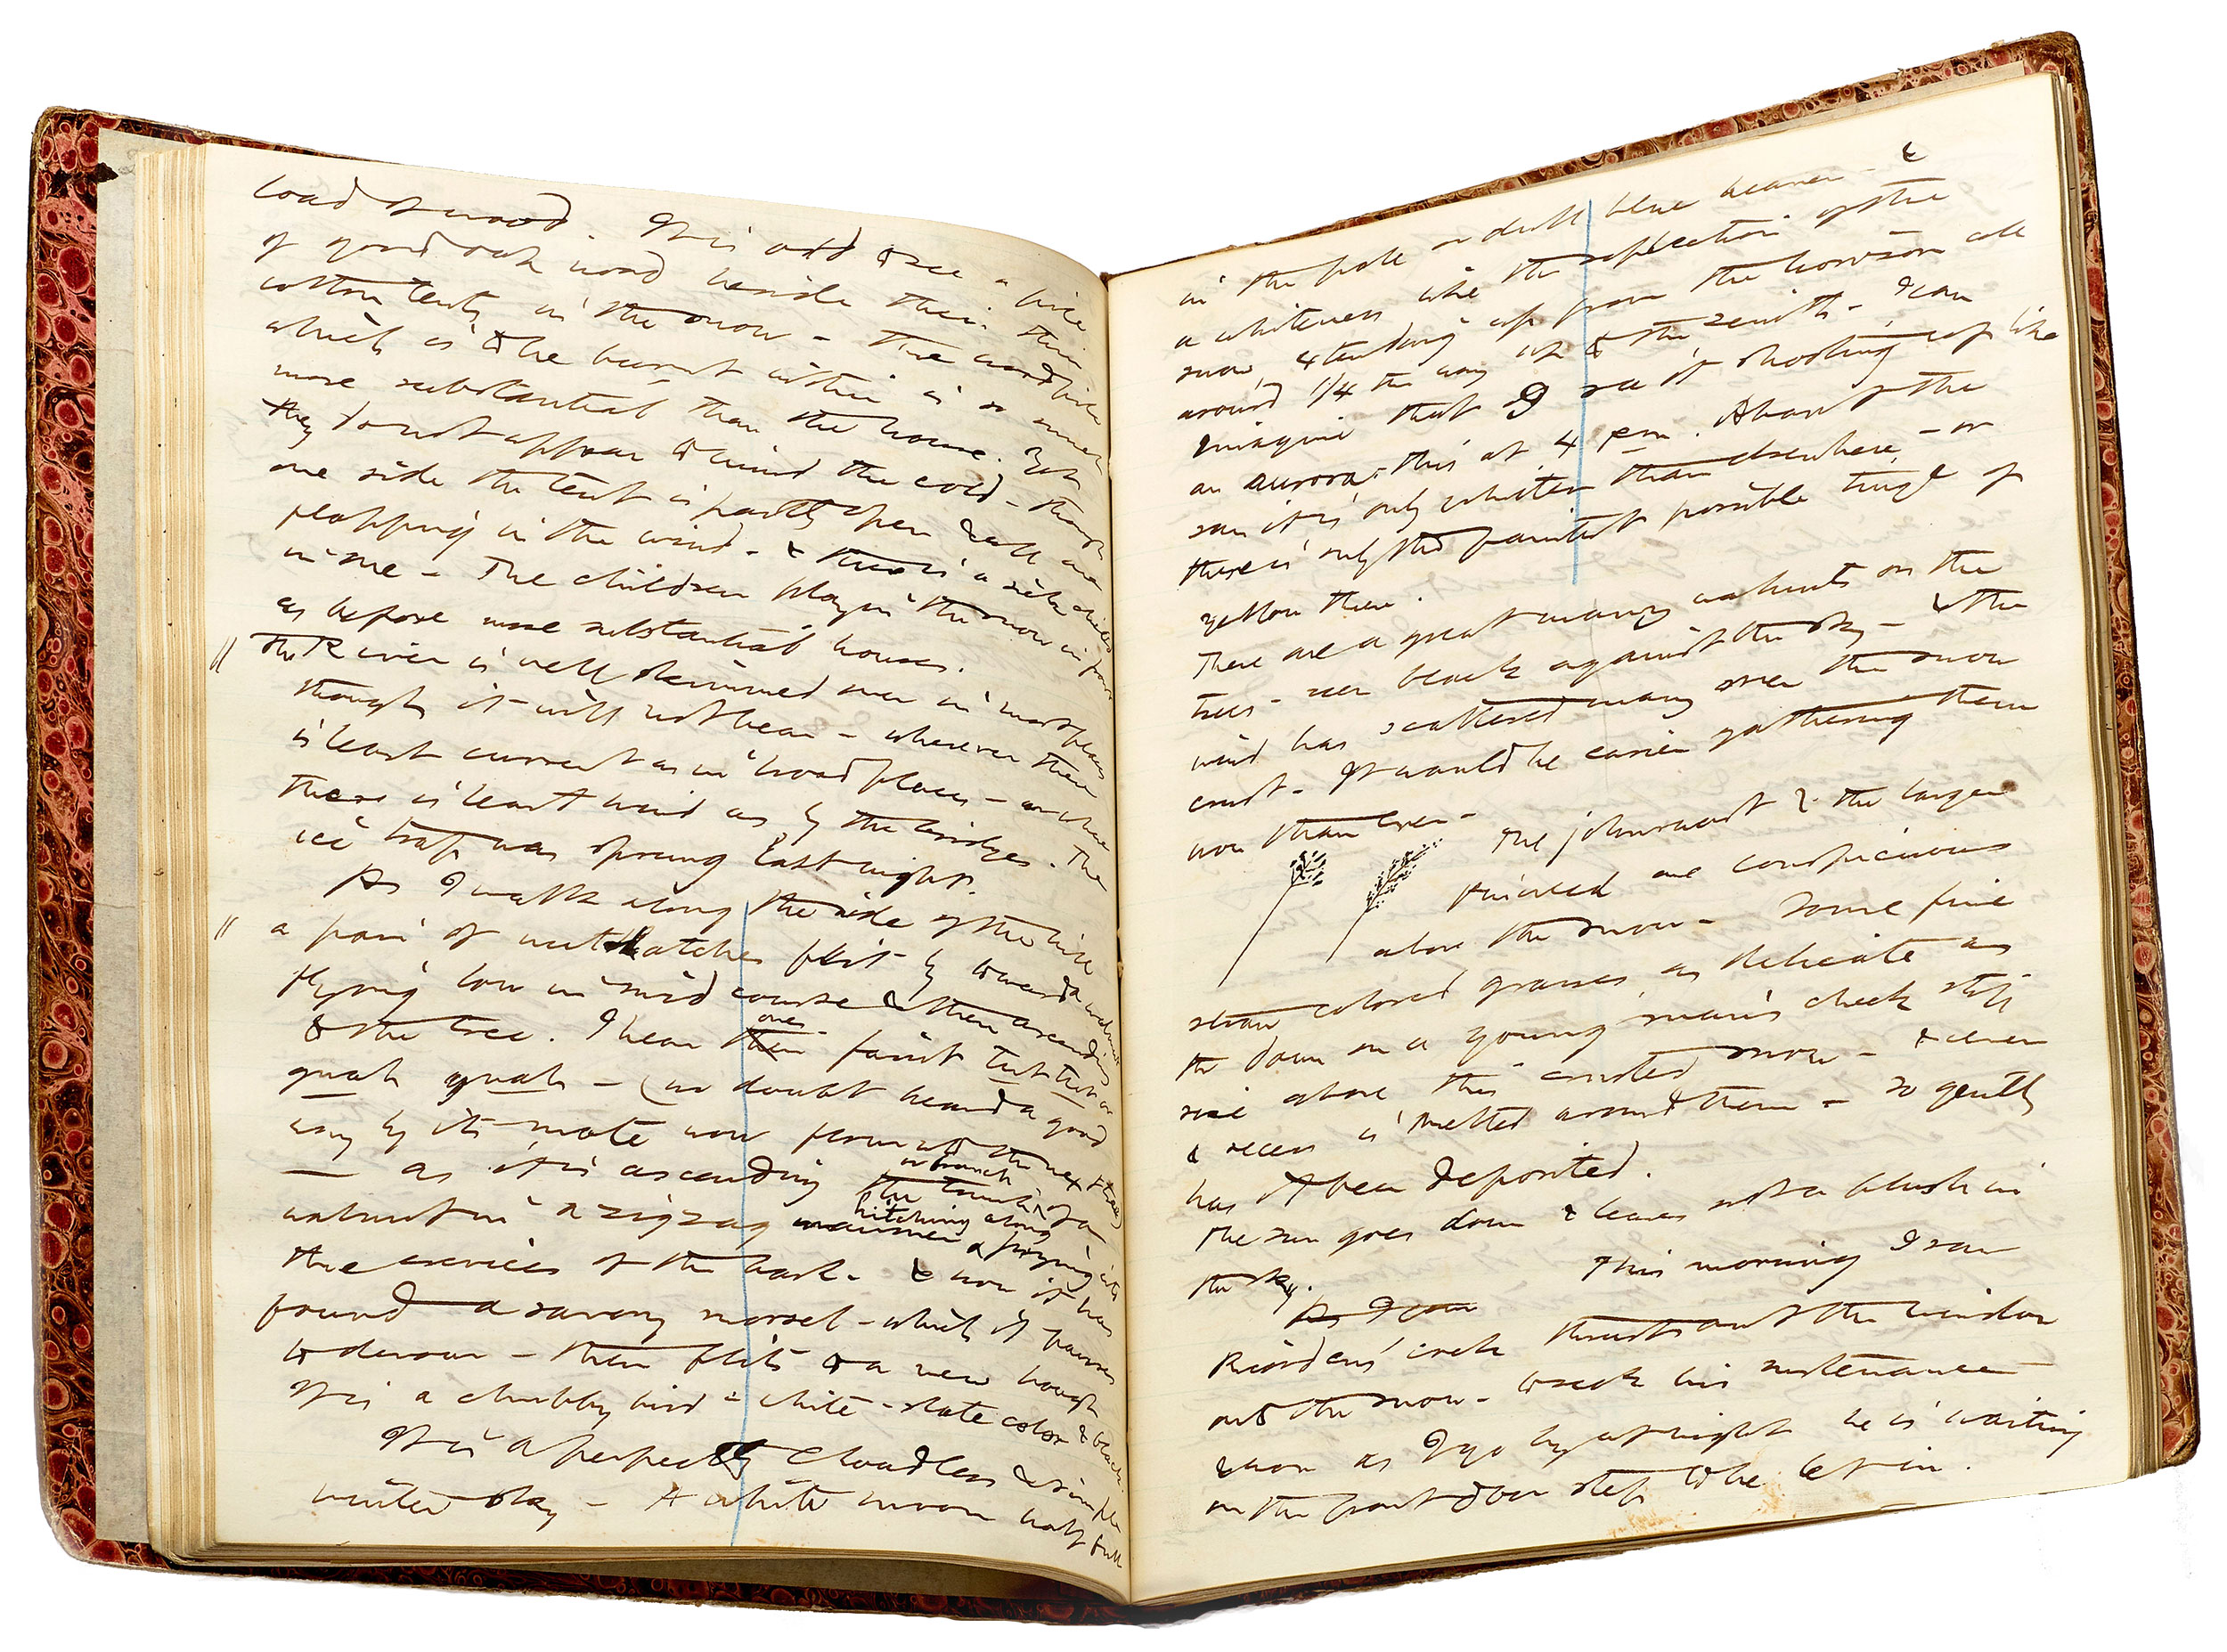 load of wood. It is odd to see a pile
of good oak wood beside their thin
cotton tents in the snow – The wood pile
which is to be burnt within is so much
more substantial than the house. Yet
they do not appear to mind the cold – though
one side the tent is partly open & all are
flapping in the wind – & there is a sick child
in one – The children play in the snow in front
as before more substantial houses.
The River is well skimmed over in most places
though it will not bear – wherever there
is least current as in broad places – or where
there is least wind as by the bridges. The
ice trap was sprung last night.
As I walk along the side of the hill
a pair of nuthatches flit by toward a walnut
flying low in mid course & then ascending
to the tree. I hear one's faint tut tut or
gnah gnah – (no doubt heard a good
way by its mate now flown into the next tree)
– as it is ascending the trunk or branch of a
walnut in a zigzag manner hitching along & prying into
the crevices of the bark – & now it has
found a savory morsel – which it pauses
to devour – then flits to a new bough
It is a chubby bird – white – slate color & black.
It is a perfectly cloudless & simple
winter sky – A white moon half full
in the pale or dull blue heaven – &
a whiteness like the reflection of the
snow extending up from the horizon all
around 1/4 the way up to the zenith – I can
imagine that I see it shooting up like
an aurora. this at 4 pm. About the
sun it is only whiter than elsewhere, – or
there is only the faintest possible tinge of
yellow there.
There are a great many walnuts on the
trees – seen black against the sky – & the
wind has scattered many over the snow
crust – It would be easier gathering them
now than ever –
The johnswort & the larger
pinweed are conspicuous
above the snow – Some fine
straw colored grasses, as delicate as
the down on a young man's cheek still
rise above this crusted snow – & even
a recess is melted around them – so gently
has it been deposited.
The sun goes down & leaves not a blush in
the sky.
This morning I saw
As I
Riordan's cock thrust out the window
onto the snow – to seek his sustenance
& now as I go by at night he is waiting
on the front door step to be let in.